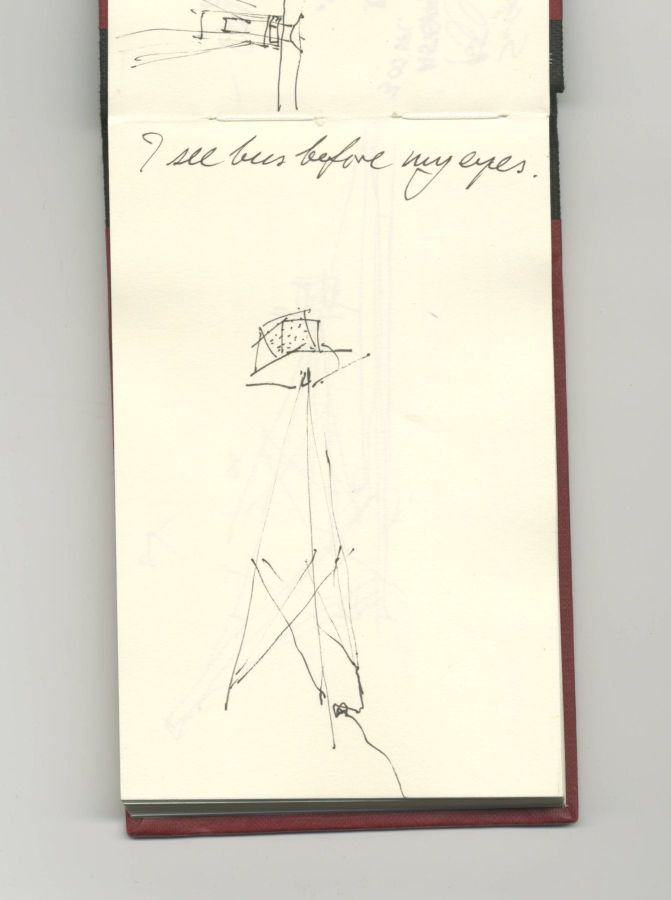 I see bus before my eyes.